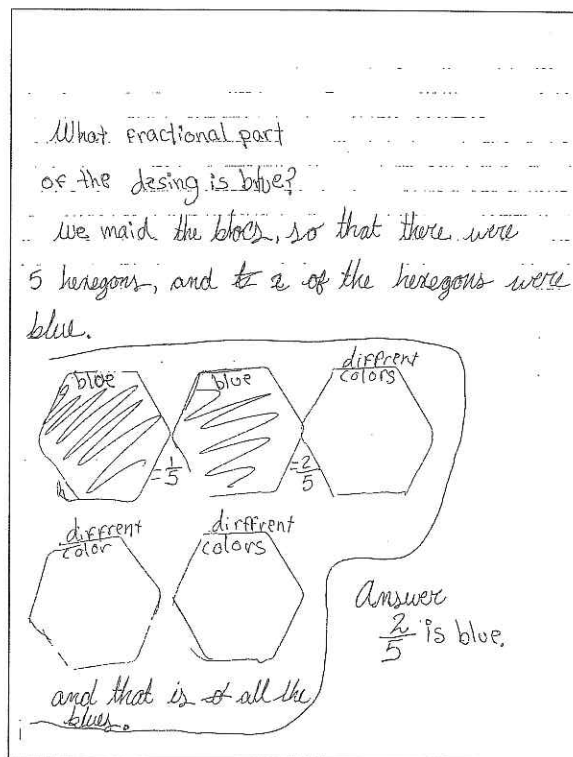 What fractional part
of the desing is blue?
we maid the blocs, so that there were
5 hexegons, and 2 of the hexegons were
blue.
blue
blue
diffrent
colors
=1/5
=2/5
diffrent
color
dirffrent
colors
Answer
2/5 is blue.
and that is all the
blues.